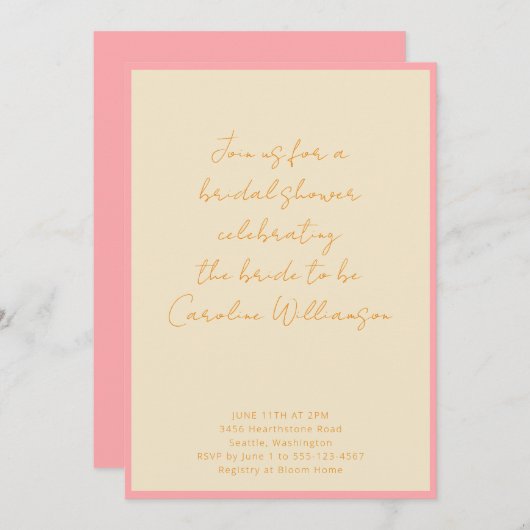 Join us for a
bridal shower
celebrating
the bride to be
Caroline Williamson
JUNE 11TH AT 2PM
3456 Hearthstone Road
Seattle, Washington
RSVP by June 1 to 555-123-4567
Registry at Bloom Home